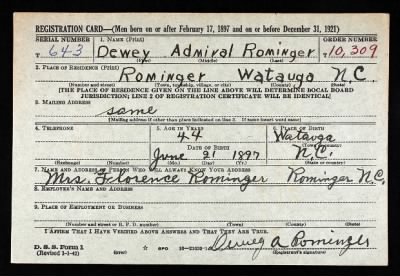 REGISTRATION CARD—(Men born on or after February 17, 1897 and on or before December 31, 1921)
SERIAL NUMBER 1. NAME (Print) ORDER NUMBER
T 643 Dewey Admiral Rominger T 10,309
2. PLACE OF RESIDENCE (Print)
Rominger Watauga N.C.
(Number and street) (Town, township, village, or city) (County) (State)
[THE PLACE OF RESIDENCE GIVEN ON THE LINE ABOVE WILL DETERMINE LOCAL BOARD
JURISDICTION; LINE 2 OF REGISTRATION CERTIFICATE WILL BE IDENTICAL]
3. MAILING ADDRESS
same
[Mailing address if other than place indicated on line 2. If same insert word same]
4. TELEPHONE 5. AGE IN YEARS 6. PLACE OF BIRTH
44 Watauga
DATE OF BIRTH (Town or county)
June 21 1897 N.C.
(Exchange) (Number) (Mo.) (Day) (Yr.) (State or country)
7. NAME AND ADDRESS OF PERSON WHO WILL ALWAYS KNOW YOUR ADDRESS
Mrs. Florence Rominger Rominger N.C.
8. EMPLOYER'S NAME AND ADDRESS
9. PLACE OF EMPLOYMENT OR BUSINESS
(Number and street or R. F. D. number) (Town) (County) (State)
I AFFIRM THAT I HAVE VERIFIED ABOVE ANSWERS AND THAT THEY ARE TRUE.
D. S. S. Form 1 GPO Dewey A. Rominger
(Revised 1-1-42) (Registrant's signature)